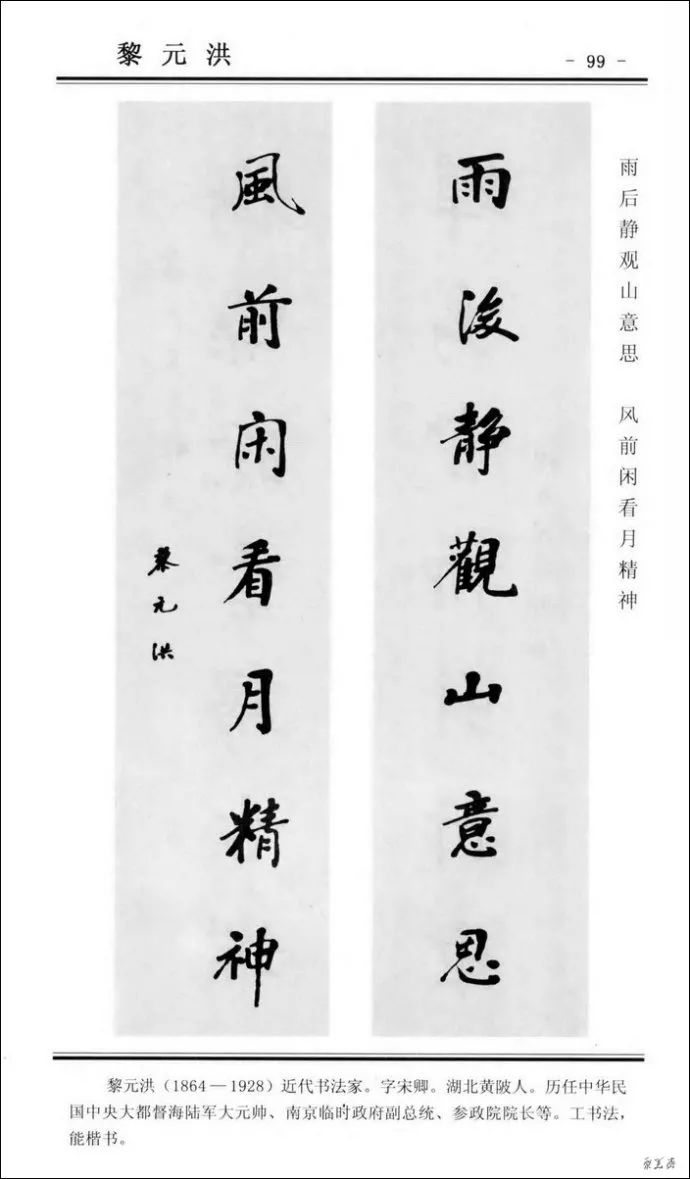 黎元洪
- 99 -
雨后静观山意思 风前闲看月精神
雨後靜觀山意思
風前闲看月精神
黎元洪
黎元洪（1864—1928）近代书法家。字宋卿。湖北黄陂人。历任中华民
国中央大都督海陆军大元帅、南京临时政府副总统、参政院院长等。工书法，
能楷书。